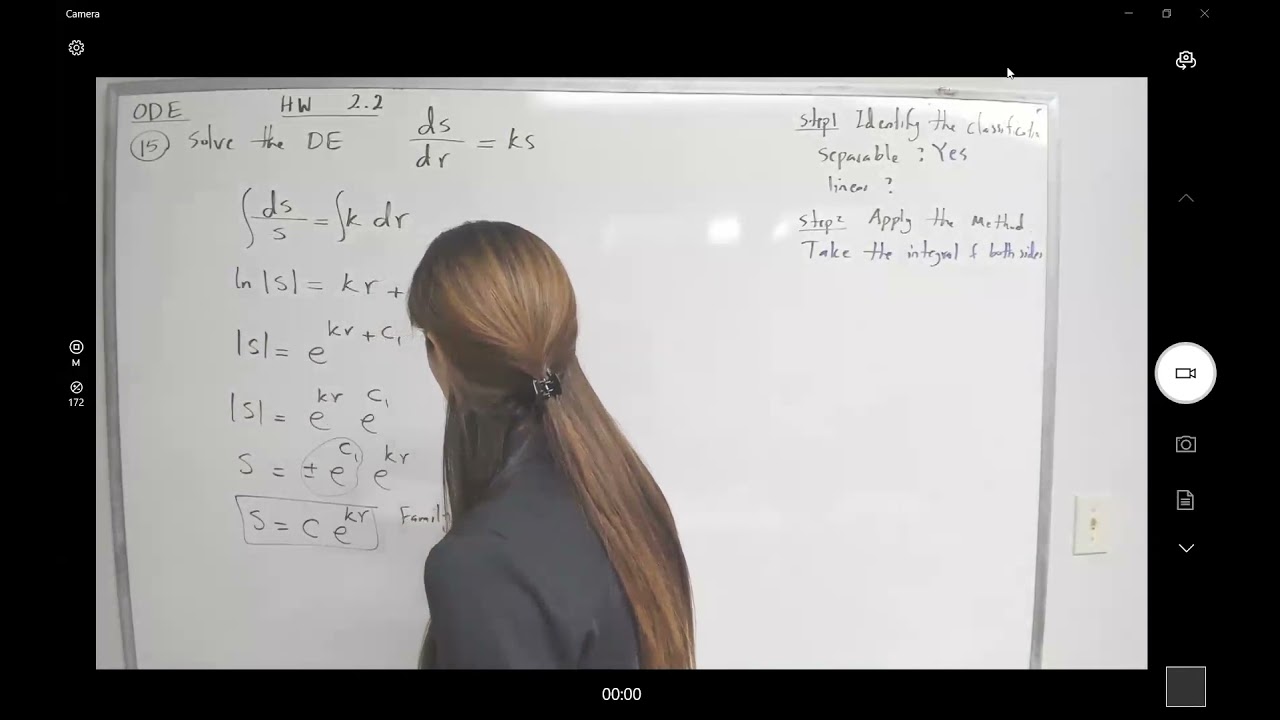 Camera
ODE HW 2.2
15 Solve the DE ds/dr = ks
∫ ds/s = ∫ k dr
ln |s| = kr +
|s| = e^{kr + c₁}
|s| = e^{kr} e^{c₁}
s = ± e^{c₁} e^{kr}
s = c e^{kr} Famil
Step1 Identify the
separable ? Yes
linear ?
Step2 Apply the Method
Take the integral of both sides
M
172
00:00